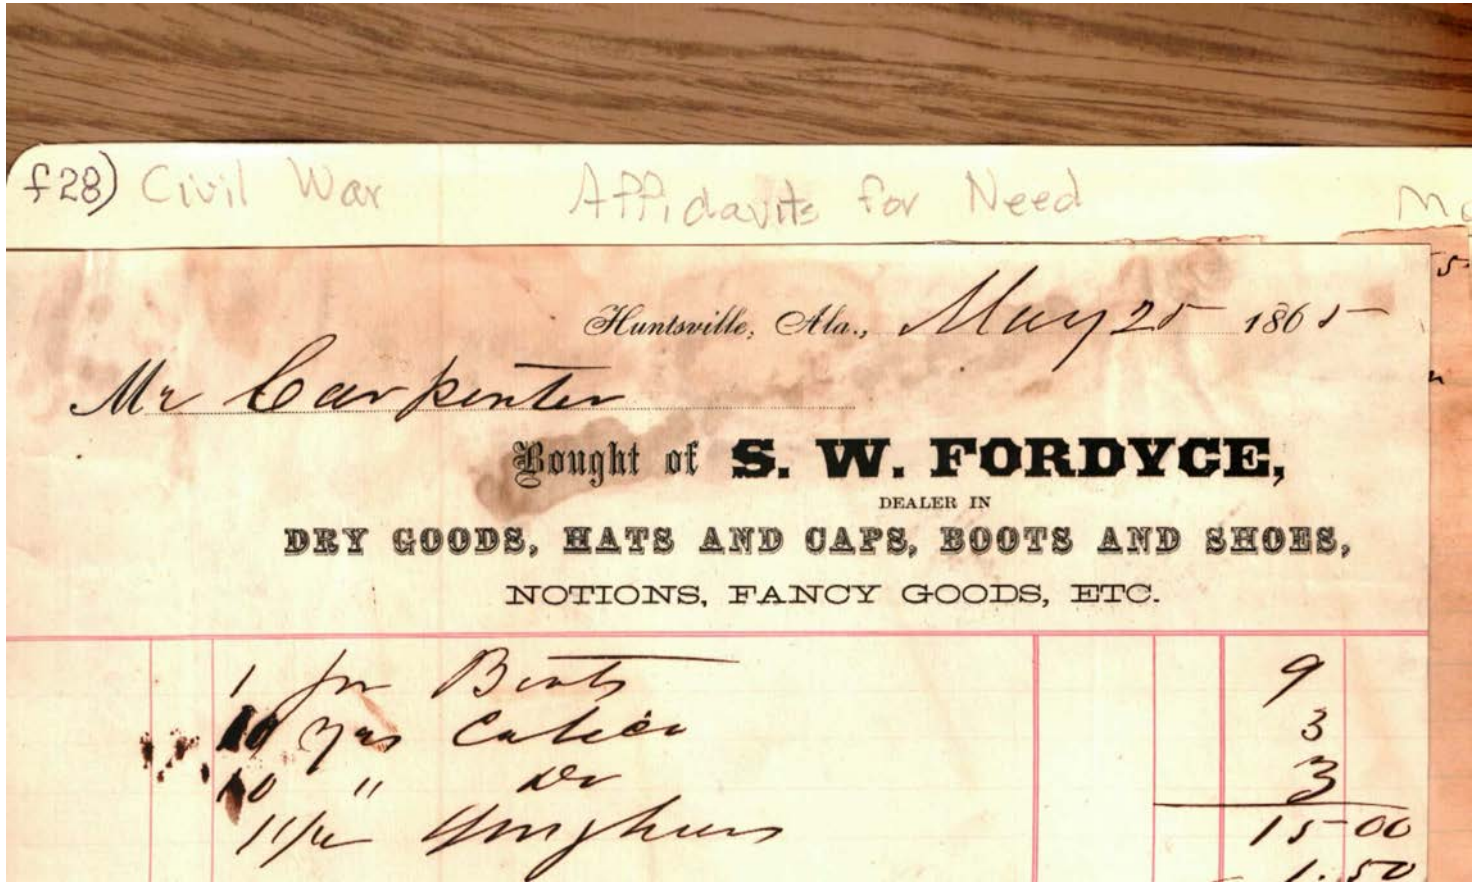 f28) Civil War Affidavits for Need
Huntsville, Ala., May 25 1865
Mr Carpenter
Bought of S. W. FORDYCE,
DEALER IN
DRY GOODS, HATS AND CAPS, BOOTS AND SHOES,
NOTIONS, FANCY GOODS, ETC.
1 pr Boots 9
10 yds Calico 3
10 " Do 3
15 00
1.50